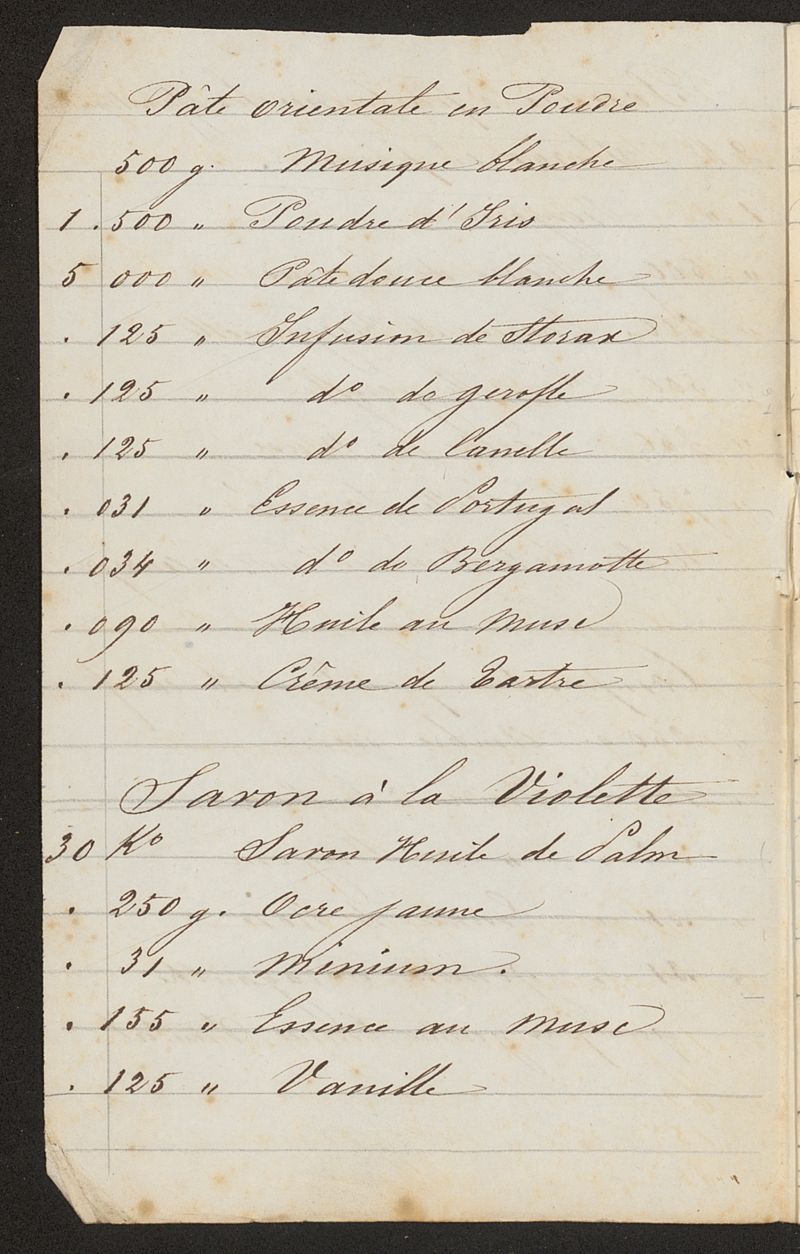 Pâte orientale en Poudre
500 g. Musique blanche
1 . 500 " Poudre d'Iris
5 000 " Pâte douce blanche
. 125 " Infusion de Storax
. 125 " do de gerofle
. 125 " do de Canelle
. 031 " Essence de Portugal
. 034 " do de Bergamotte
. 090 " Huile au Musc
. 125 " Crême de Tartre
Savon à la Violette
30 Ko Savon Huile de Palm
. 250 g. Ocre jaune
. 31 " Minium.
. 155 " Essence au Musc
. 125 " Vanille